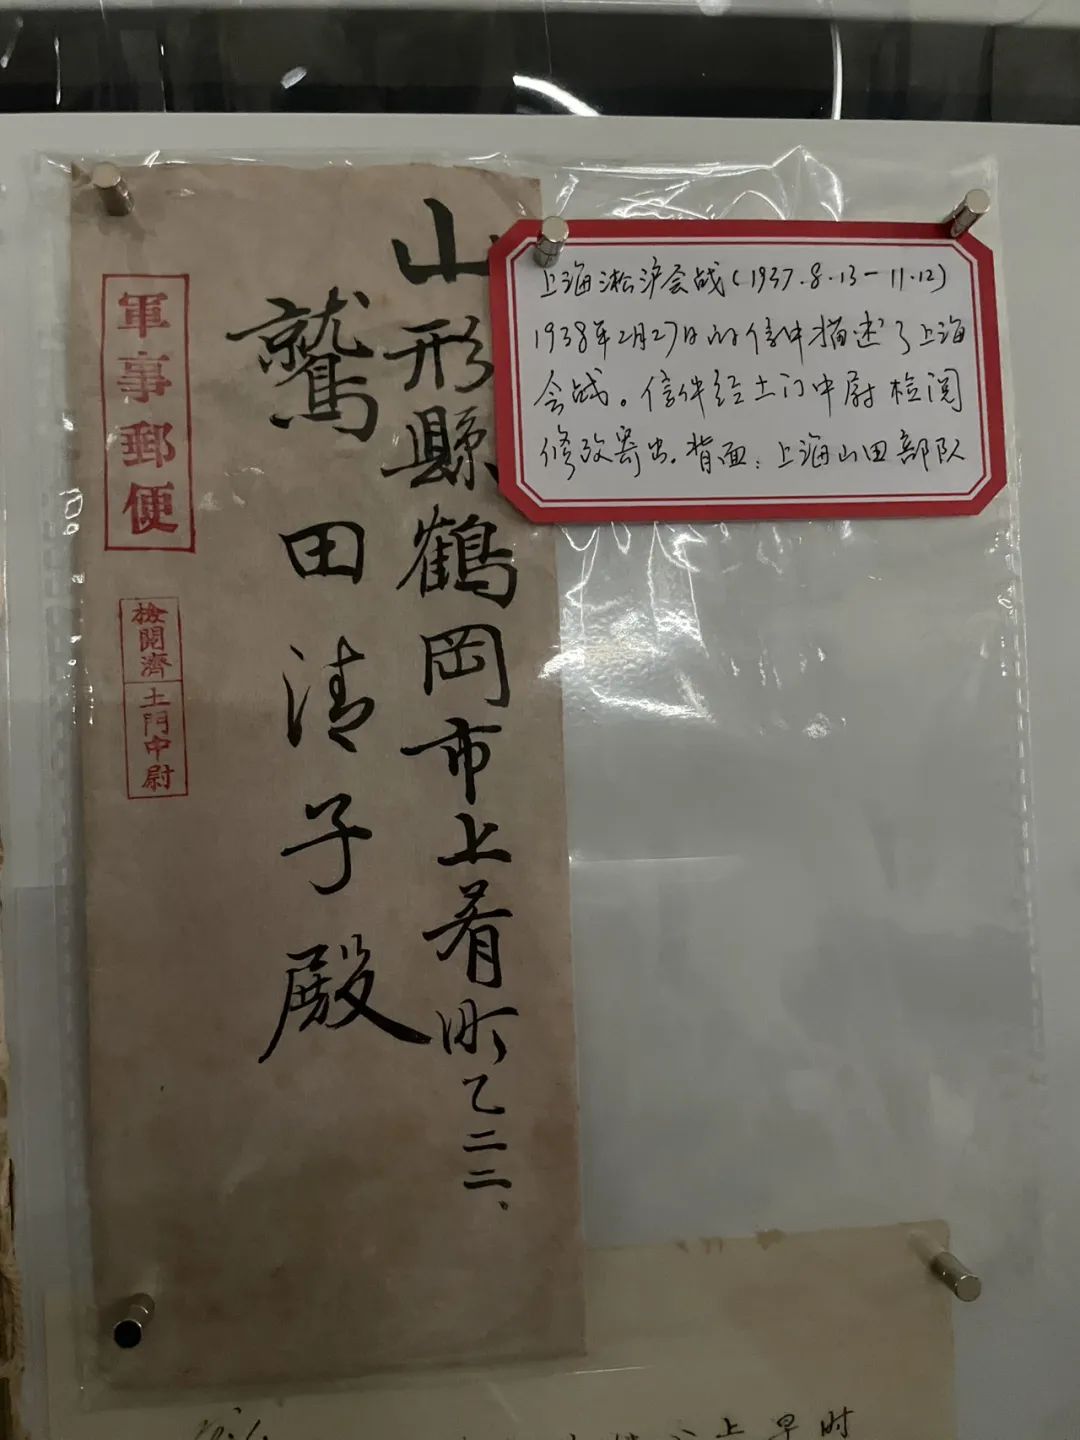 山形縣鶴岡市上肴町乙二二、
鷲田清子殿
軍事郵便
檢閲濟
土門中尉
上海淞沪会战(1937.8.13-11.12)
1938年2月27日的信中描述了上海
会战。信件经土门中尉检阅
修改寄出。背面:上海山田部队
上早时